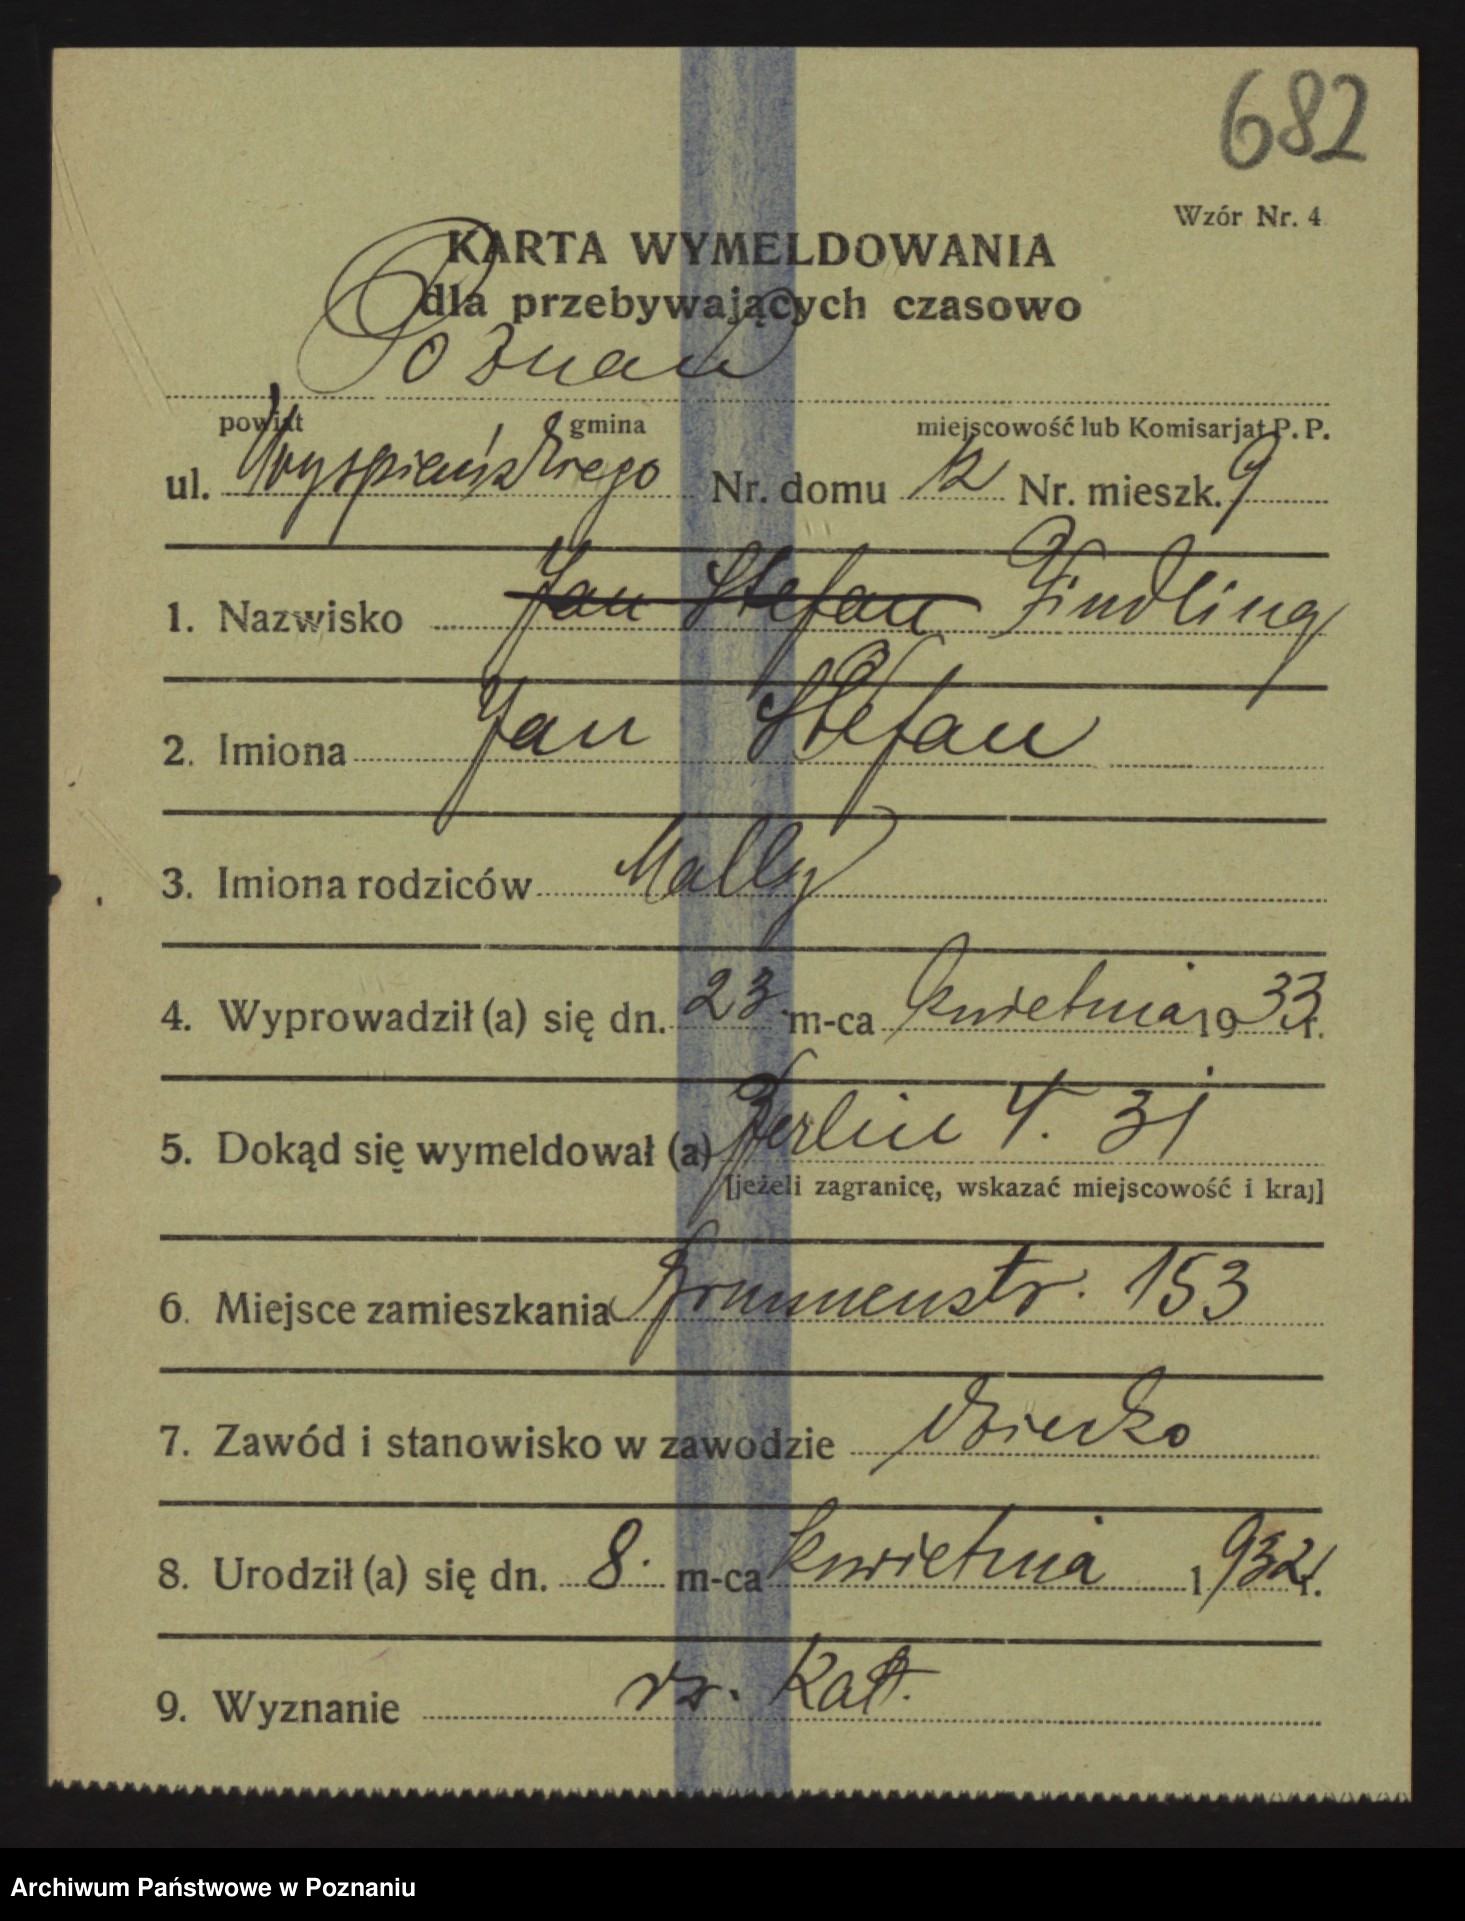 682
Wzór Nr. 4
KARTA WYMELDOWANIA
dla przebywających czasowo
Poznań
powiat gmina miejscowość lub Komisarjat P. P.
ul. Wyspiańskiego Nr. domu 12 Nr. mieszk. 9
1. Nazwisko Jan Stefan Findling
2. Imiona Jan Stefan
3. Imiona rodziców Mally
4. Wyprowadził (a) się dn. 23 m-ca kwietnia 1933 r.
5. Dokąd się wymeldował (a) Berlin 4. 31
[jeżeli zagranicę, wskazać miejscowość i kraj]
6. Miejsce zamieszkania Brunnenstr. 153
7. Zawód i stanowisko w zawodzie dziecko
8. Urodził (a) się dn. 8. m-ca kwietnia 1932 r.
9. Wyznanie rz. kat.
Archiwum Państwowe w Poznaniu